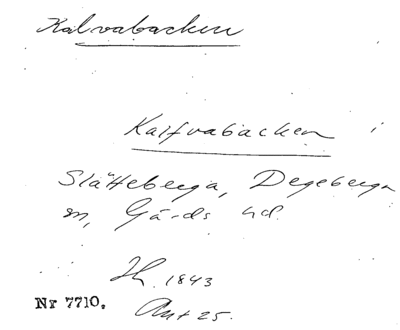 Kalvabacken
Kalfvabacken i
Slätteberga, Degeberga
sn, Gärds hd.
Lh. 1843
Akt 25.
Nr 7710.